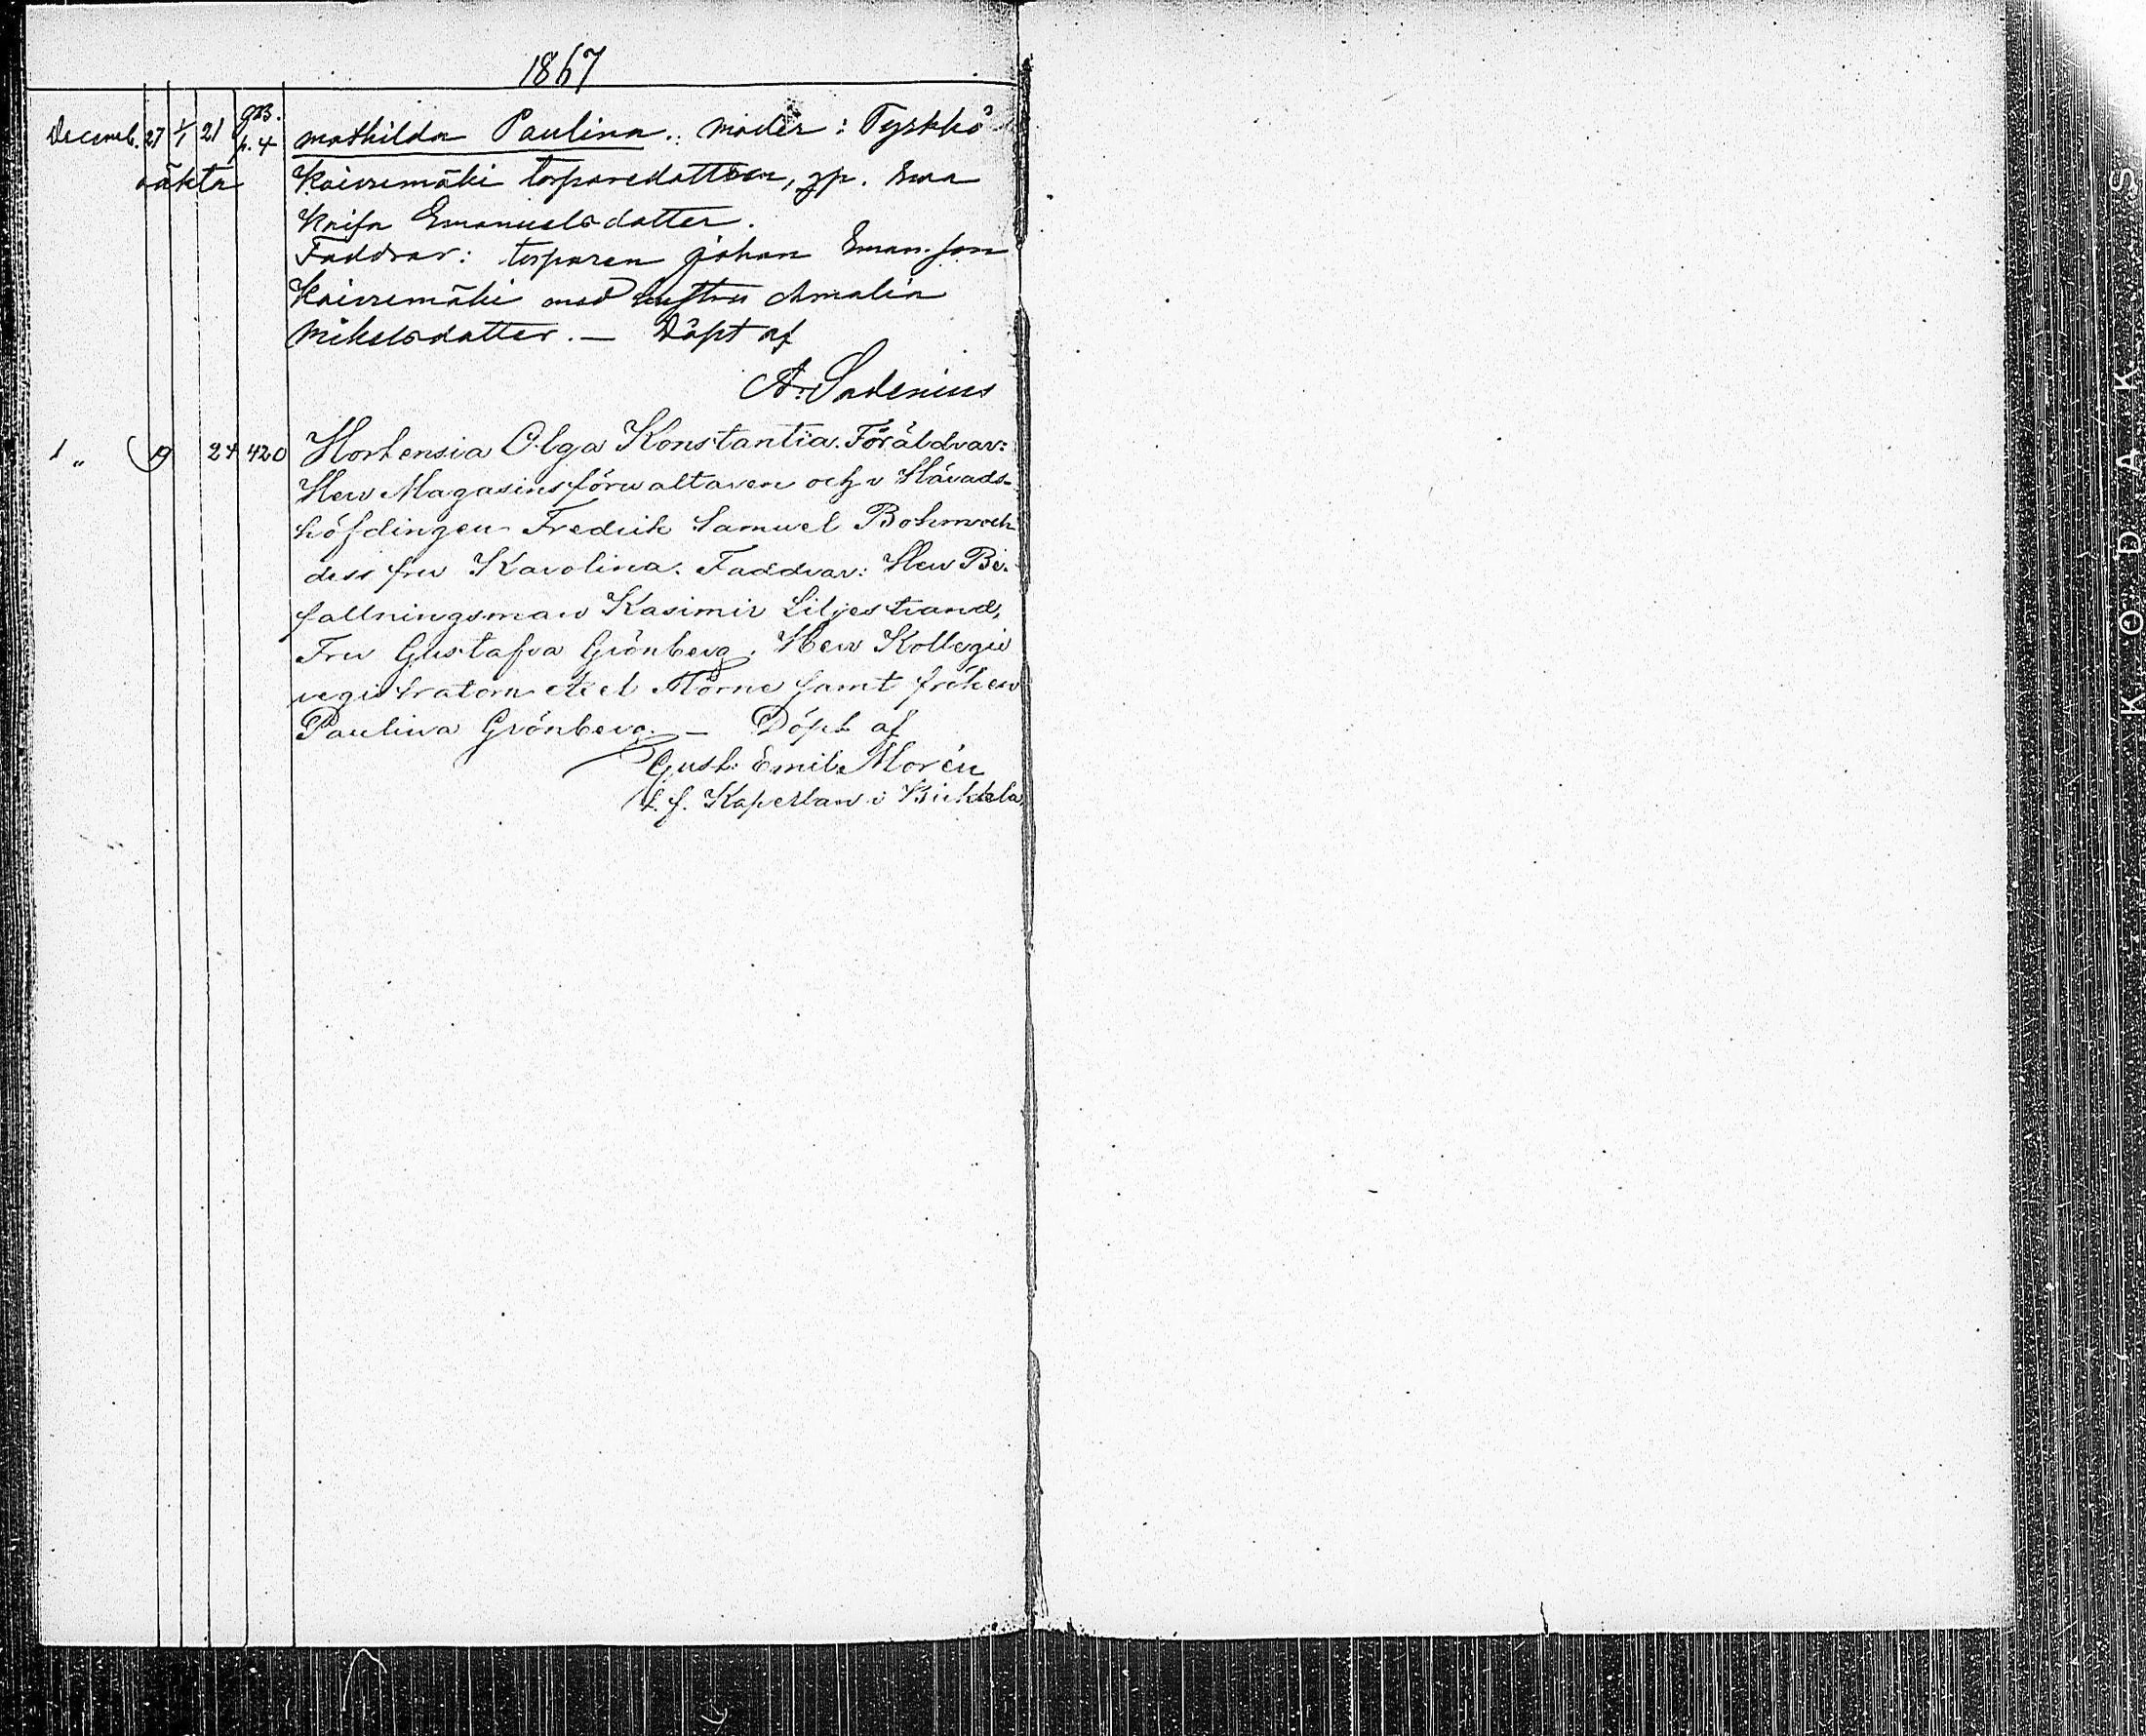 1867
Decemb. 27 1/1 21 gB. p. 4 Mathilda Paulina. moder: Tyrkkö
oäkta Kaivremäki torparedottren, gp. Ewa
Kaisa Emanuelsdotter.
Faddrar: torparen Johan Eman.son
Kaivremäki med hustru Amalia
Mikelsdotter. — Döpt af
A. Sadenius
1 " 19 24 420 Hortensia Olga Konstantia. Föräldrar:
Herr Magasinsförvaltaren och v Härads-
höfdingen Fredrik Samuel Bohm och
dess fru Karolina. Faddrar: Herr Be-
fallningsman Kasimir Liljestrand,
Fru Gustafva Grönberg. Herr Kollegii
registratorn Axel Mörne samt fröken
Paulina Grönberg. — Döpt af
Gust. Emil Morén
t. f. Kapellan i
KODAK S